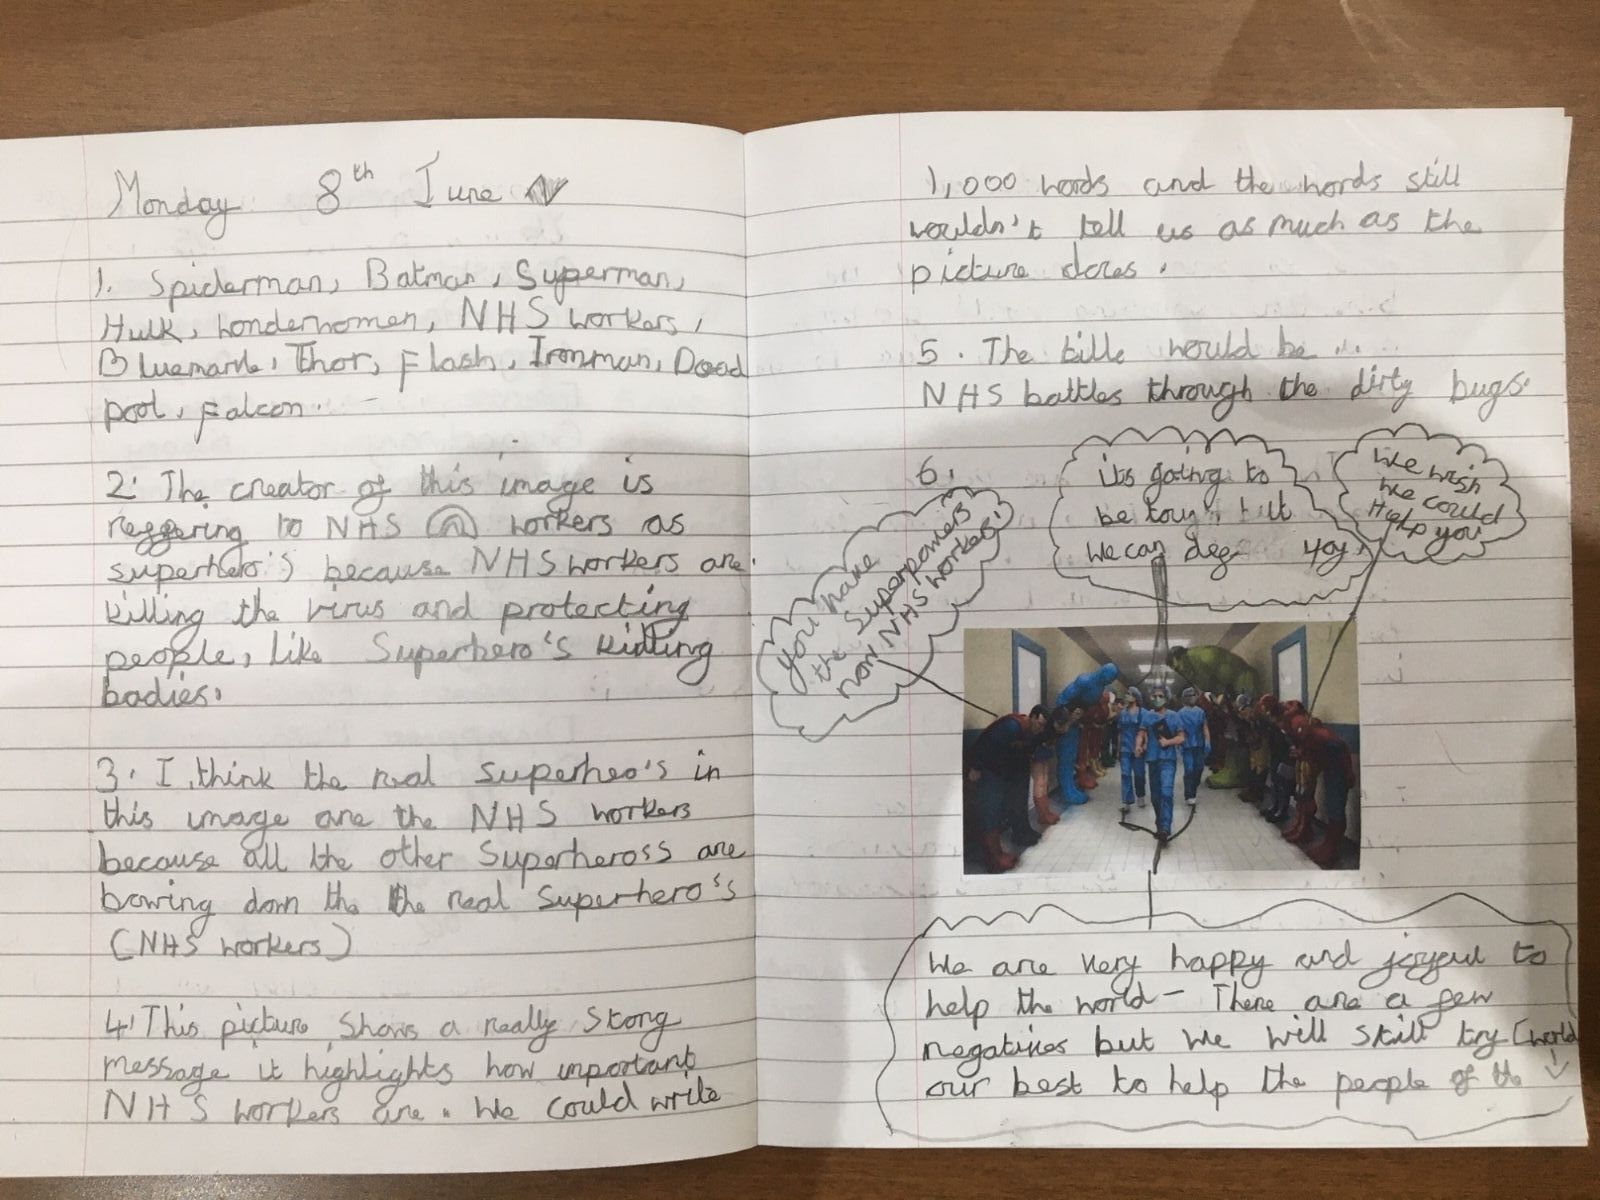 Monday 8th June
1. Spiderman, Batman, Superman,
Hulk, wonderwomen, NHS workers,
Bluemarvle, Thor, Flash, Ironman, Dead
pool, Falcon.
2. The creator of this image is
reffering to NHS workers as
superhero's because NHS workers are
killing the virus and protecting
people, like Superhero's killing
badies.
3. I think the real superheo's in
this image are the NHS workers
because all the other Superheross are
bowing down the the real Superhero's
(NHS workers)
4. This picture shows a really stong
message it highlights how important
NHS workers are. We could write
1,000 words and the words still
wouldn't tell us as much as the
picture does.
5. The title would be ...
NHS battles through the dirty bugs.
6.
you have
the Superpowers
now NHS workers!
its going to
be tough but
we can
we wish
we could
Help you
We are very happy and joyful to
help the world - There are a few
negatives but we will still try
our best to help the people of the
world